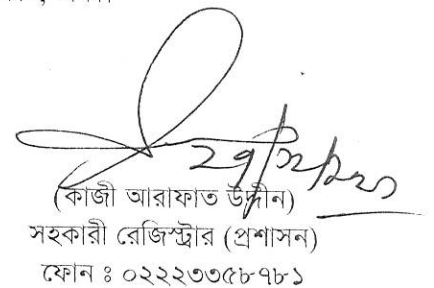 ২৭/১২/২২
(কাজী আরাফাত উদ্দীন)
সহকারী রেজিস্ট্রার (প্রশাসন)
ফোন ঃ ০২২২৩৩৫৮৭৮১